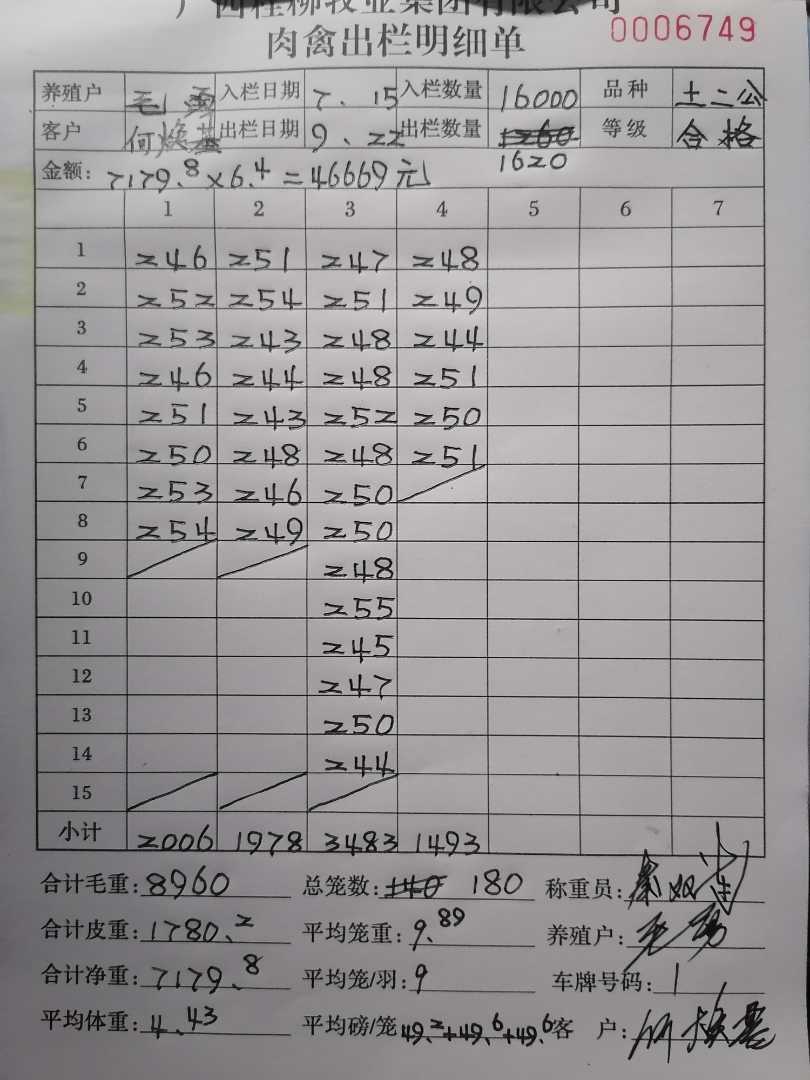 广西桂柳牧业集团有限公司
肉禽出栏明细单 0006749
养殖户 毛勇 入栏日期 7.15 入栏数量 16000 品种 土二公
客户 何焕基 出栏日期 9.22 出栏数量 1260 等级 合格
1620
金额: 7179.8×6.4=46669元
1 2 3 4 5 6 7
1 246 251 247 248
2 252 254 251 249
3 253 243 248 244
4 246 244 248 251
5 251 243 252 250
6 250 248 248 251
7 253 246 250
8 254 249 250
9 248
10 255
11 245
12 247
13 250
14 244
15
小计 2006 1978 3483 1493
合计毛重: 8960 总笼数: 140 180 称重员:
合计皮重: 1780.2 平均笼重: 9.89 养殖户: 毛勇
合计净重: 7179.8 平均笼/羽: 9 车牌号码: 1
平均体重: 4.43 平均磅/笼 49.2+49.6+49.6 客 户: 何焕基